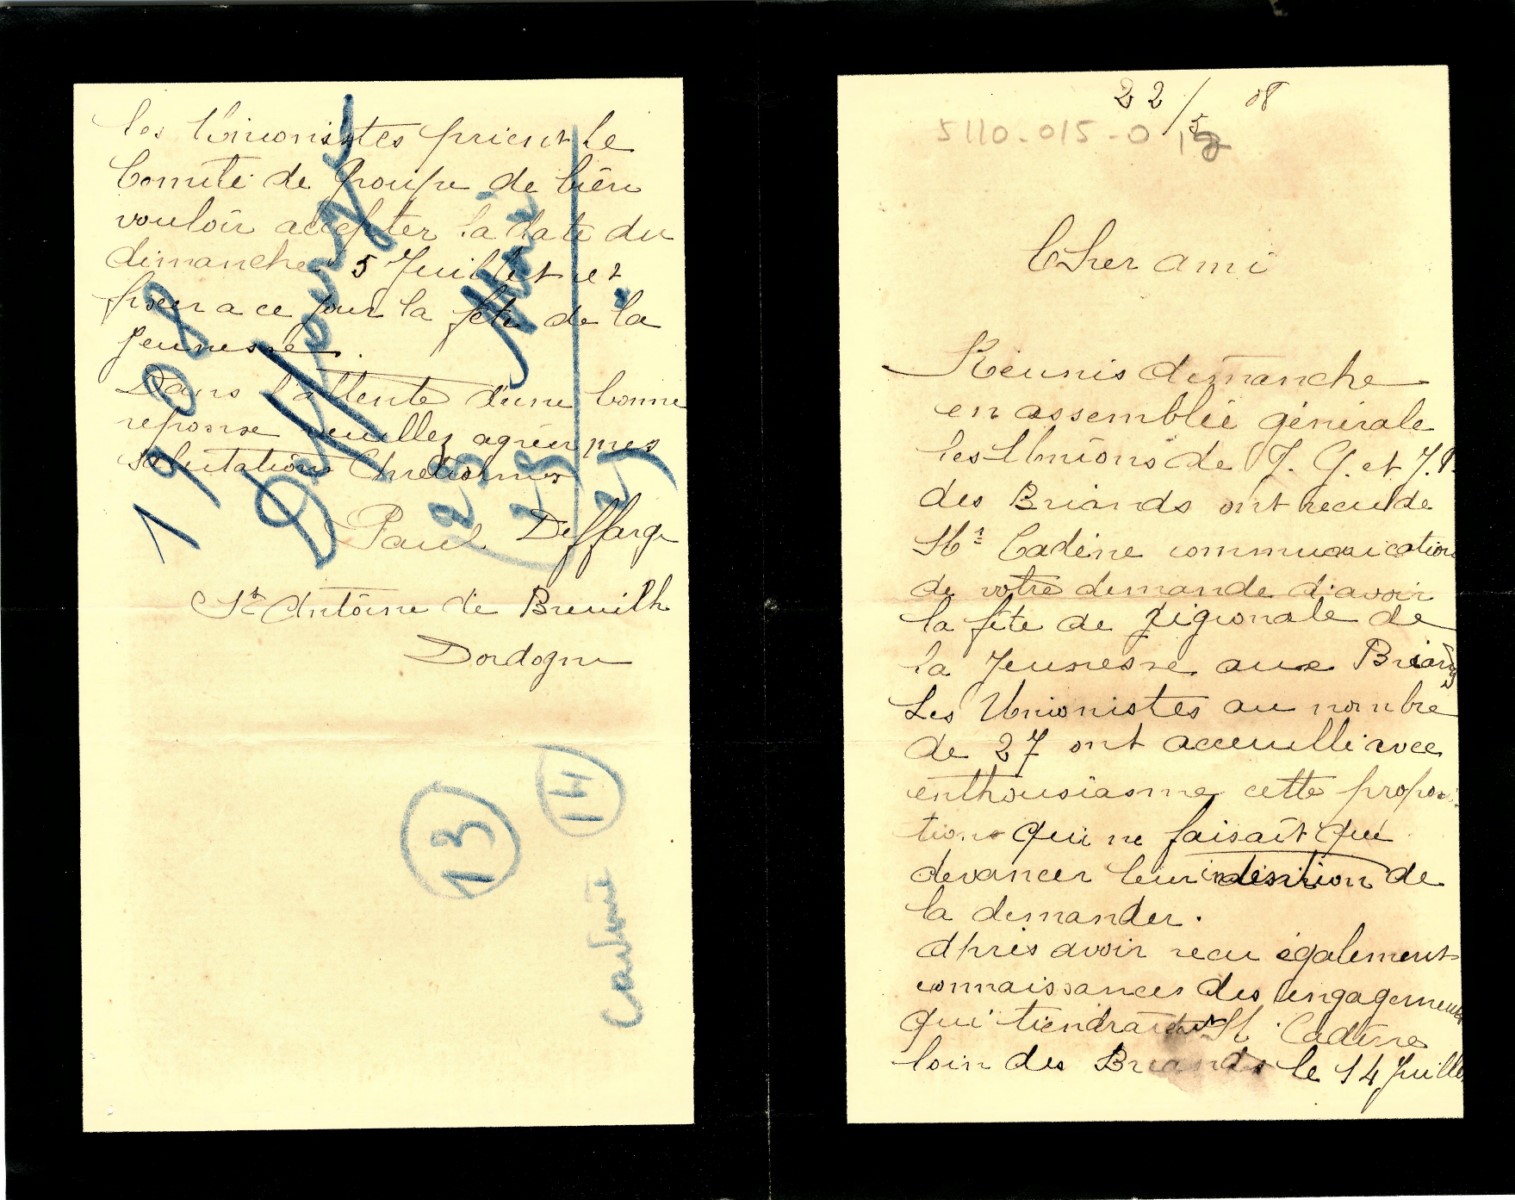 22/5 08
5110-015-0 18
Cher ami
Réunis dimanche
en assemblée générale
les Unions de J. G. et J. F.
des Briands ont recu de
Mr Cadène communication
de votre demande d'avoir
la fête de régionale de
la Jeunesse aux Briands
Les Unionistes au nombre
de 27 ont acceuilli avec
enthousiasme cette proposi
tion qui ne faisait que
devancer leur intention de
la demander.
Après avoir recu également
connaissances des engagements
qui tiendraient Mr Cadène
loin des Briands le 14 Juillet
les Unionistes prient le
Comité de Groupe de bien
vouloir accepter la date du
dimanche 5 Juillet et
fixer a ce jour la fête de la
Jeunesse.
Dans l'attente d'une bonne
reponse veuillez agréer mes
salutations Chretiennes
Paul Deffarge
St Antoine de Breuilh
Dordogne
1908
Deffarge
22 Mai
13
14
Cadène